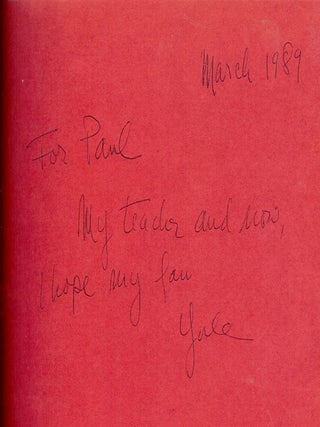 March 1989
For Paul
My teacher and now,
I hope my fan
Yale